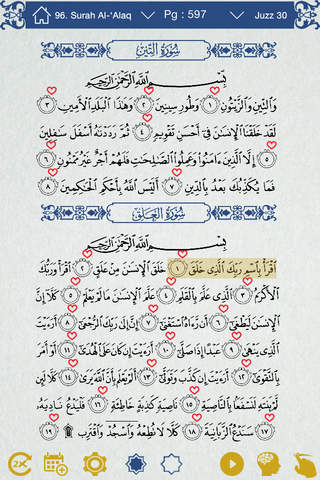 96. Surah Al-'Alaq
Pg : 597
Juzz 30
سُورَةُ التِّينِ
بِسْمِ اللَّهِ الرَّحْمَٰنِ الرَّحِيمِ
وَالتِّينِ وَالزَّيْتُونِ ١ وَطُورِ سِينِينَ ٢ وَهَٰذَا الْبَلَدِ الْأَمِينِ ٣
لَقَدْ خَلَقْنَا الْإِنسَٰنَ فِي أَحْسَنِ تَقْوِيمٍ ٤ ثُمَّ رَدَدْنَٰهُ أَسْفَلَ سَٰفِلِينَ
٥ إِلَّا الَّذِينَ ءَامَنُوا وَعَمِلُوا الصَّٰلِحَٰتِ فَلَهُمْ أَجْرٌ غَيْرُ مَمْنُونٍ ٦
فَمَا يُكَذِّبُكَ بَعْدُ بِالدِّينِ ٧ أَلَيْسَ اللَّهُ بِأَحْكَمِ الْحَٰكِمِينَ ٨
سُورَةُ الْعَلَقِ
بِسْمِ اللَّهِ الرَّحْمَٰنِ الرَّحِيمِ
اقْرَأْ بِاسْمِ رَبِّكَ الَّذِي خَلَقَ ١ خَلَقَ الْإِنسَٰنَ مِنْ عَلَقٍ ٢ اقْرَأْ وَرَبُّكَ
الْأَكْرَمُ ٣ الَّذِي عَلَّمَ بِالْقَلَمِ ٤ عَلَّمَ الْإِنسَٰنَ مَا لَمْ يَعْلَمْ ٥ كَلَّا إِنَّ
الْإِنسَٰنَ لَيَطْغَىٰ ٦ أَن رَّءَاهُ اسْتَغْنَىٰ ٧ إِنَّ إِلَىٰ رَبِّكَ الرُّجْعَىٰ ٨ أَرَءَيْتَ
الَّذِي يَنْهَىٰ ٩ عَبْدًا إِذَا صَلَّىٰ ١٠ أَرَءَيْتَ إِن كَانَ عَلَى الْهُدَىٰ ١١ أَوْ أَمَرَ
بِالتَّقْوَىٰ ١٢ أَرَءَيْتَ إِن كَذَّبَ وَتَوَلَّىٰ ١٣ أَلَمْ يَعْلَم بِأَنَّ اللَّهَ يَرَىٰ ١٤ كَلَّا لَئِن
لَّمْ يَنتَهِ لَنَسْفَعًا بِالنَّاصِيَةِ ١٥ نَاصِيَةٍ كَٰذِبَةٍ خَاطِئَةٍ ١٦ فَلْيَدْعُ نَادِيَهُ
١٧ سَنَدْعُ الزَّبَانِيَةَ ١٨ كَلَّا لَا تُطِعْهُ وَاسْجُدْ وَاقْتَرِب ۩ ١٩
2X